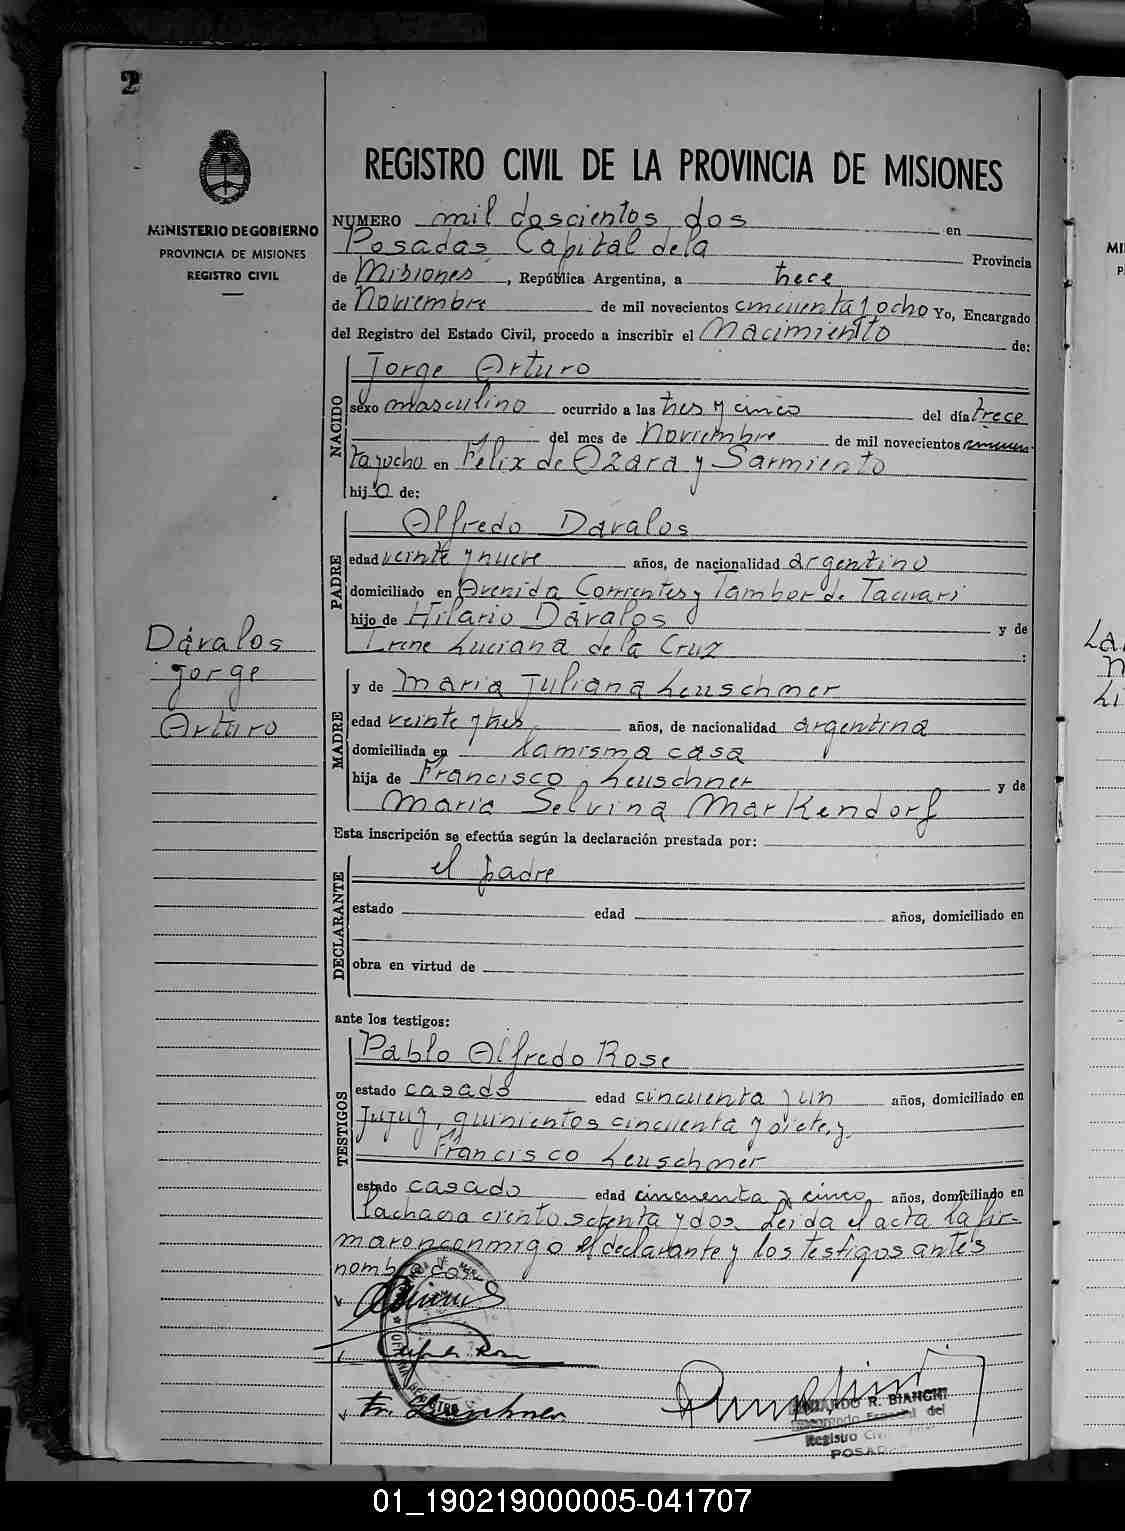 2
MINISTERIO DE GOBIERNO
PROVINCIA DE MISIONES
REGISTRO CIVIL
REGISTRO CIVIL DE LA PROVINCIA DE MISIONES
NUMERO mil doscientos dos en
Posadas Capital dela Provincia
de Misiones, República Argentina, a trece
de Noviembre de mil novecientos cincuenta y ocho Yo, Encargado
del Registro del Estado Civil, procedo a inscribir el Nacimiento de:
NACIDO
Jorge Arturo
sexo masculino ocurrido a las tres y cinco del día trece
del mes de Noviembre de mil novecientos cincuen-
ta yocho en Félix de Azara y Sarmiento
hijo de:
PADRE
Alfredo Dávalos
edad veinte y nueve años, de nacionalidad argentino
domiciliado en Avenida Corrientes y Tambor de Tacuari
hijo de Hilario Dávalos y de
Irene Luciana dela Cruz :
Dávalos
Jorge
Arturo
MADRE
y de Maria Juliana Leuschner
edad veinte y tres años, de nacionalidad argentina
domiciliada en La misma casa
hija de Francisco Leuschner y de
Maria Selvina Markendorf
Esta inscripción se efectúa según la declaración prestada por:
DECLARANTE
el padre
estado edad años, domiciliado en
obra en virtud de
ante los testigos:
TESTIGOS
Pablo Alfredo Rose
estado casado edad cincuenta y un años, domiciliado en
Jujuy, quinientos cincuenta y siete, y
Francisco Leuschner
estado casado edad cincuenta y cinco años, domiciliado en
Lachara ciento setenta y dos. Leida el acta la fir-
maron conmigo el declarante y los testigos antes
nombrados
Fr. Leuschner
EDUARDO R. BIANCHI
Encargado Especial del
Registro Civil
POSADAS
01_190219000005-041707